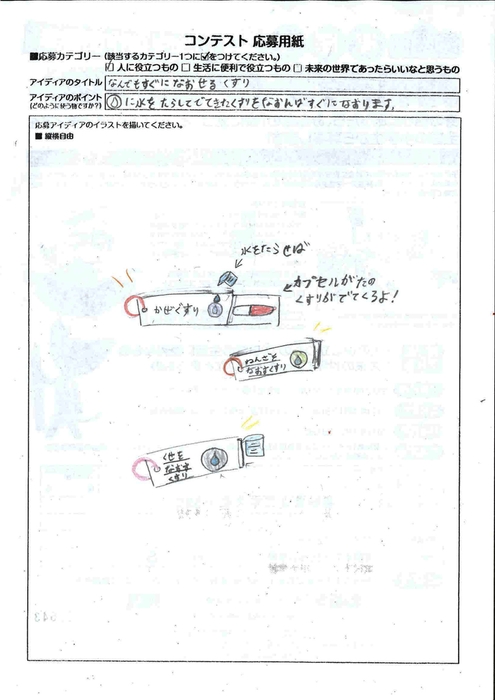 コンテスト 応募用紙
■応募カテゴリー (該当するカテゴリー1つに☑をつけてください。)
☑ 人に役立つもの □ 生活に便利で役立つもの □ 未来の世界であったらいいなと思うもの
アイディアのタイトル なんでもすぐになおせるくすり
アイディアのポイント
(どのように使う物ですか?) に水をたらしてでてきたくすりをなおればすぐになおります。
応募アイディアのイラストを描いてください。
■ 縦横自由
水をたらせば
カプセルがたの
くすりがでてくるよ!
かぜぐすり
ねんざを
なおすくすり
くせを
なおす
くすり